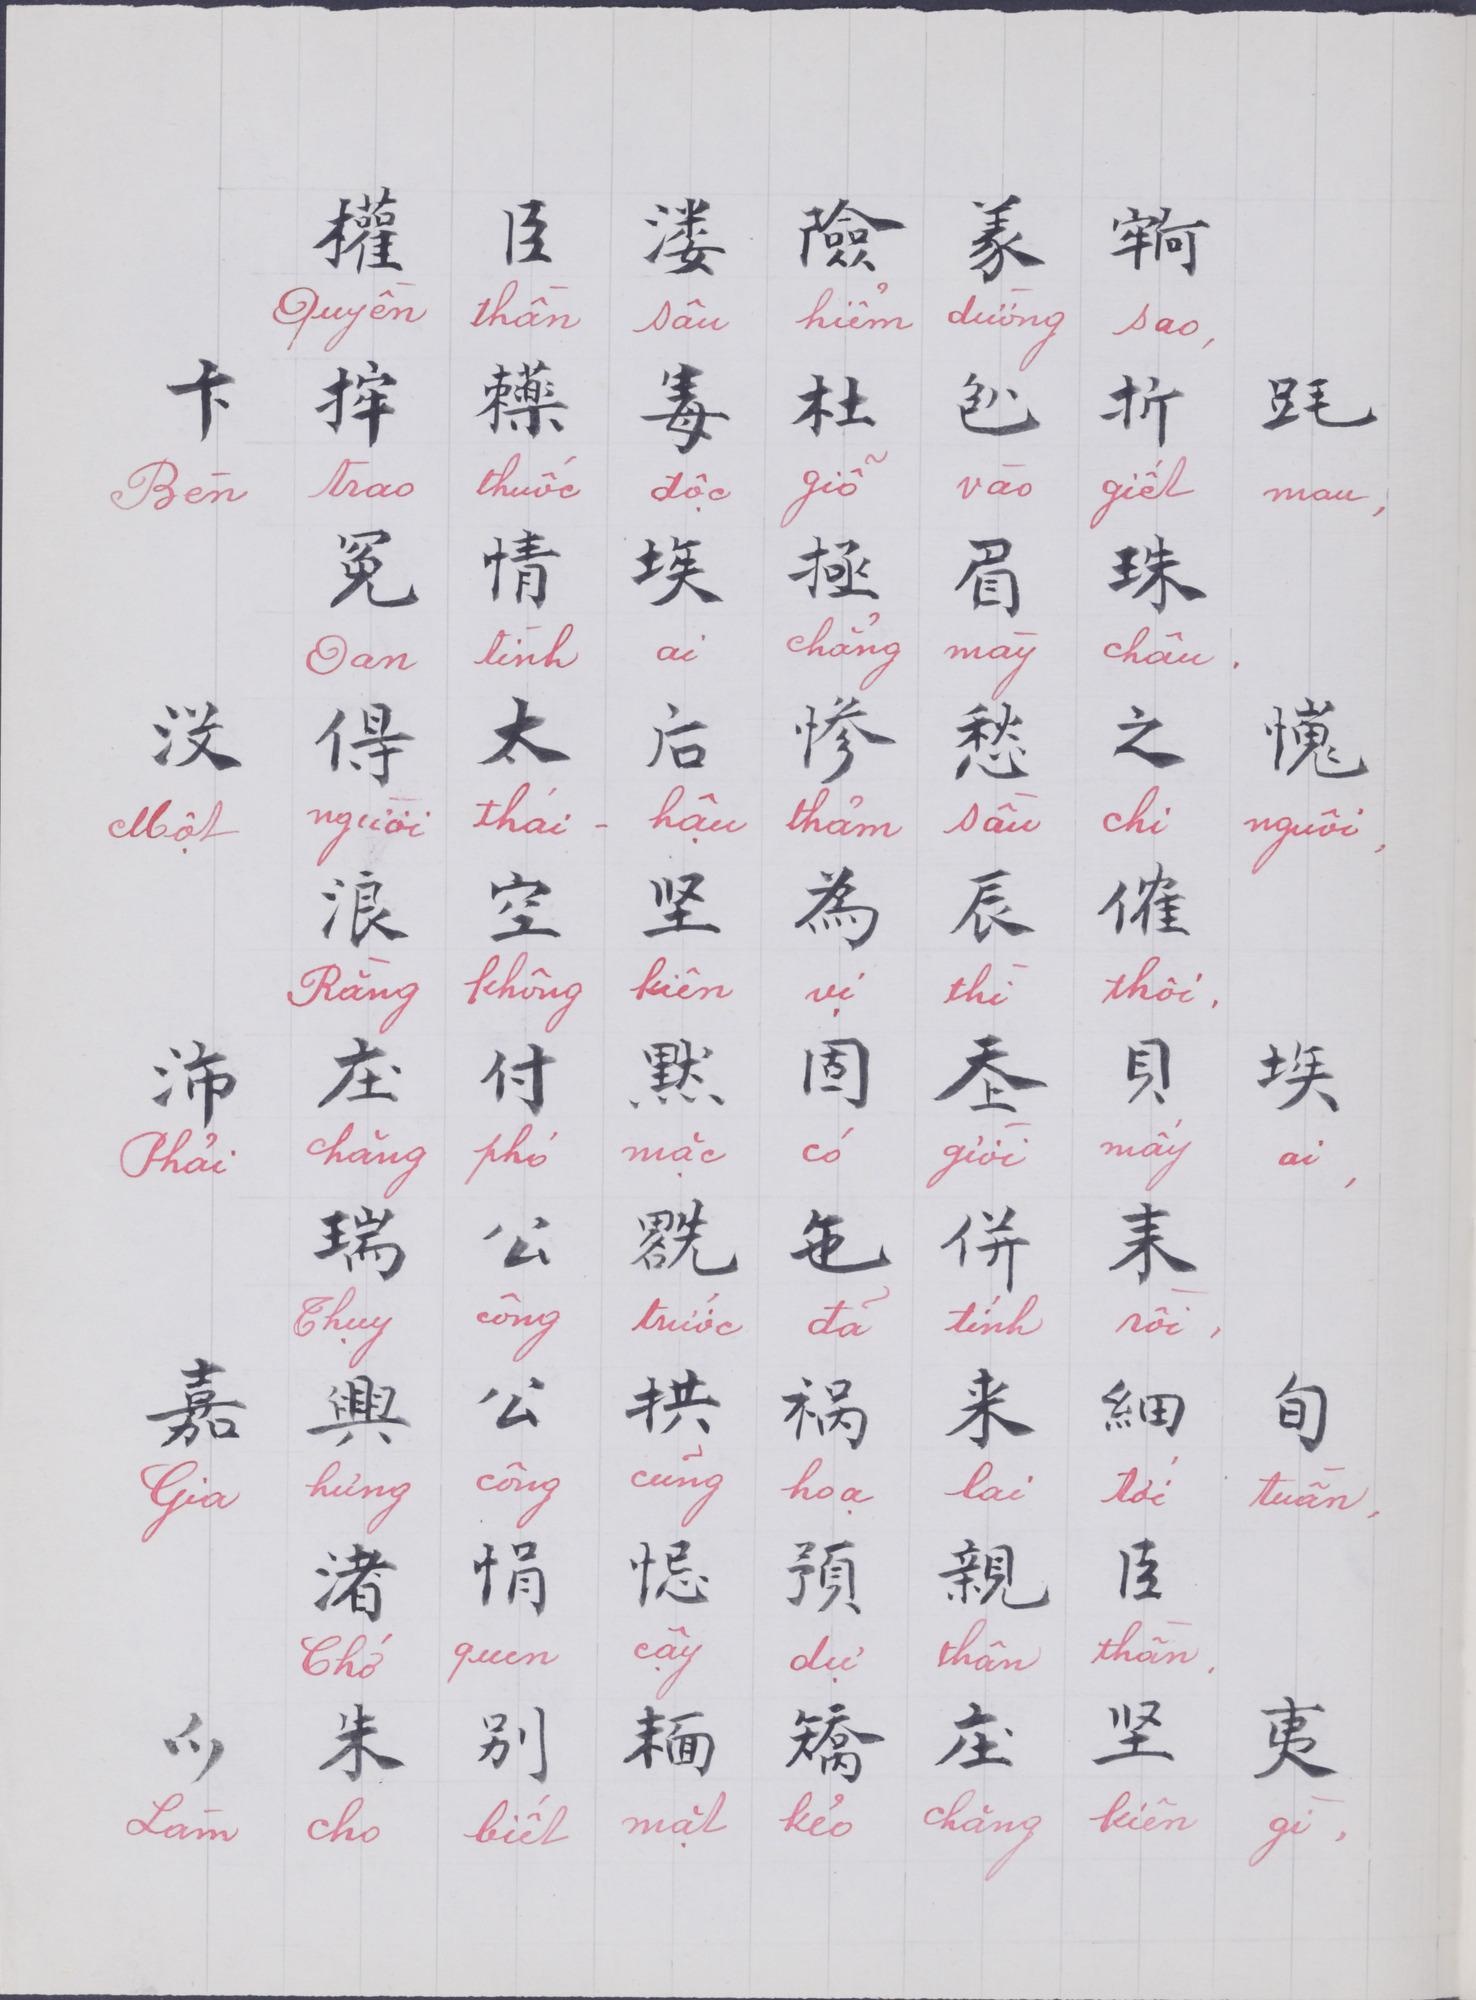 權 臣 溇 險 羕 𫳵
Quyền thần sâu hiểm dường sao,
卞 捽 𧆄 毒 杜 𠓨 折 𨁼
Bèn trao thuốc độc giỗ vào giết mau,
冤 情 埃 拯 眉 珠
Oan tình ai chẳng mày châu.
没 𠊛 太 后 慘 愁 之 𢣧
Một người thái - hậu thảm sầu chi nguôi,
浪 空 坚 為 辰 傕
Rằng không kiên vị thì thôi,
沛 庄 付 默 固 𡗶 貝 埃
Phải chăng phó mặc có giời mấy ai,
瑞 公 𠓀 㐌 併 耒
Thụy công trước đã tính rồi,
嘉 興 公 拱 祸 来 細 旬
Gia hưng công cũng hoạ lai tới tuần,
渚 悁 忌 預 親 臣
Chớ quen cậy dự thân thần,
𪜀 朱 别 𩈘 矯 庄 坚 夷
Làm cho biết mặt kẻo chăng kiên gì,